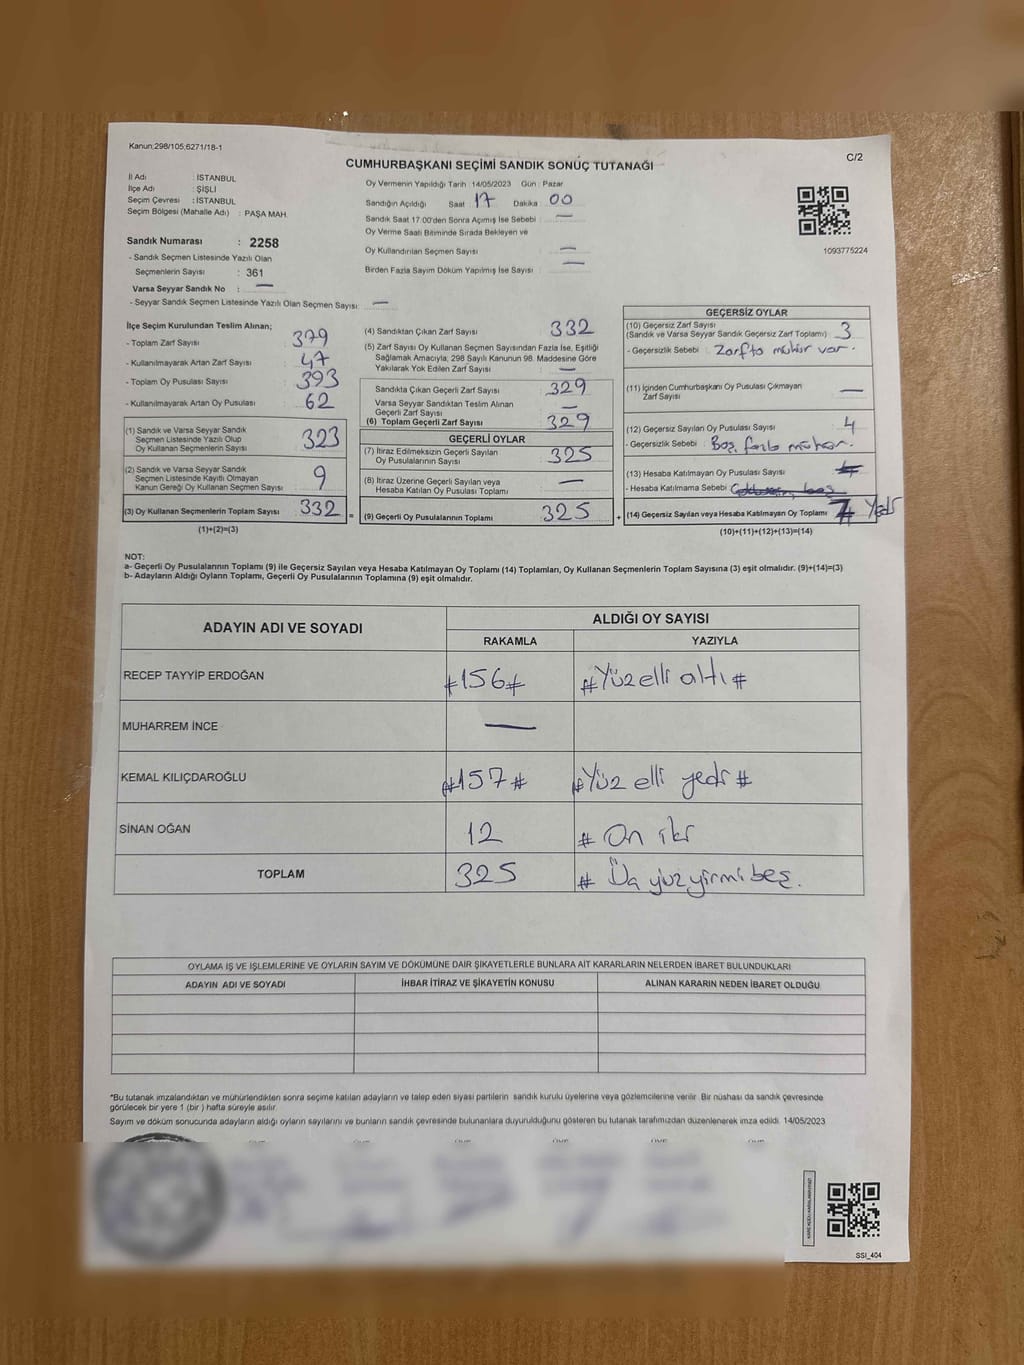 Kanun;298/105,6271/18-1
CUMHURBAŞKANI SEÇİMİ SANDIK SONUÇ TUTANAĞI
C/2
İl Adı : İSTANBUL
İlçe Adı : ŞİŞLİ
Seçim Çevresi : İSTANBUL
Seçim Bölgesi (Mahalle Adı) : PAŞA MAH.
Oy Vermenin Yapıldığı Tarih :14/05/2023 Gün : Pazar
Sandığın Açıldığı Saat : 17 Dakika : 00
Sandık Saat 17:00'den Sonra Açımış İse Sebebi : —
Oy Verme Saati Bitiminde Sırada Bekleyen ve
Oy Kullandırılan Seçmen Sayısı : —
Birden Fazla Sayım Döküm Yapılmış İse Sayısı : —
1093775224
Sandık Numarası : 2258
- Sandık Seçmen Listesinde Yazılı Olan
Seçmenlerin Sayısı : 361
Varsa Seyyar Sandık No : —
- Seyyar Sandık Seçmen Listesinde Yazılı Olan Seçmen Sayısı: —
İlçe Seçim Kurulundan Teslim Alınan;
- Toplam Zarf Sayısı : 379
- Kullanılmayarak Artan Zarf Sayısı : 47
- Toplam Oy Pusulası Sayısı : 393
- Kullanılmayarak Artan Oy Pusulası : 62
(1) Sandık ve Varsa Seyyar Sandık
Seçmen Listesinde Yazılı Olup
Oy Kullanan Seçmenlerin Sayısı : 323
(2) Sandık ve Varsa Seyyar Sandık
Seçmen Listesinde Kayıtlı Olmayan
Kanun Gereği Oy Kullanan Seçmen Sayısı : 9
(3) Oy Kullanan Seçmenlerin Toplam Sayısı : 332 =
(1)+(2)=(3)
(4) Sandıktan Çıkan Zarf Sayısı : 332
(5) Zarf Sayısı Oy Kullanan Seçmen Sayısından Fazla İse, Eşitliği
Sağlamak Amacıyla; 298 Sayılı Kanunun 98. Maddesine Göre
Yakılarak Yok Edilen Zarf Sayısı : —
Sandıkta Çıkan Geçerli Zarf Sayısı : 329
Varsa Seyyar Sandıktan Teslim Alınan
Geçerli Zarf Sayısı : —
(6) Toplam Geçerli Zarf Sayısı : 329
GEÇERLİ OYLAR
(7) İtiraz Edilmeksizin Geçerli Sayılan
Oy Pusulalarının Sayısı : 325
(8) İtiraz Üzerine Geçerli Sayılan veya
Hesaba Katılan Oy Pusulası Toplamı : —
(9) Geçerli Oy Pusulalarının Toplamı : 325 +
GEÇERSİZ OYLAR
(10) Geçersiz Zarf Sayısı
(Sandık ve Varsa Seyyar Sandık Geçersiz Zarf Toplamı) : 3
- Geçersizlik Sebebi : Zarfta mühür var.
(11) İçinden Cumhurbaşkanı Oy Pusulası Çıkmayan
Zarf Sayısı : —
(12) Geçersiz Sayılan Oy Pusulası Sayısı : 4
- Geçersizlik Sebebi : Boş,
(13) Hesaba Katılmayan Oy Pusulası Sayısı :
- Hesaba Katılmama Sebebi
(14) Geçersiz Sayılan veya Hesaba Katılmayan Oy Toplamı : 7 Yedi
(10)+(11)+(12)+(13)=(14)
NOT:
a- Geçerli Oy Pusulasının Toplamı (9) ile Geçersiz Sayılan veya Hesaba Katılmayan Oy Toplamı (14) Toplamları, Oy Kullanan Seçmenlerin Toplam Sayısına (3) eşit olmalıdır. (9)+(14)=(3)
b- Adayların Aldığı Oyların Toplamı, Geçerli Oy Pusulalarının Toplamına (9) eşit olmalıdır.
ADAYIN ADI VE SOYADI
ALDIĞI OY SAYISI
RAKAMLA YAZIYLA
RECEP TAYYİP ERDOĞAN #156# #Yüz elli altı#
MUHARREM İNCE —
KEMAL KILIÇDAROĞLU #157# #Yüz elli yedi#
SİNAN OĞAN 12 # On iki
TOPLAM 325 # Üç yüz yirmi beş.
OYLAMA İŞ VE İŞLEMLERİNE VE OYLARIN SAYIM VE DÖKÜMÜNE DAİR ŞİKAYETLERLE BUNLARA AİT KARARLARIN NELERDEN İBARET BULUNDUKLARI
ADAYIN ADI VE SOYADI İHBAR İTİRAZ VE ŞİKAYETİN KONUSU ALINAN KARARIN NEDEN İBARET OLDUĞU
*Bu tutanak imzalandıktan ve mühürlendikten sonra seçime katılan adayların ve talep eden siyasi partilerin sandık kurulu üyelerine veya gözlemcilerine verilir. Bir nüshası da sandık çevresinde
görülecek bir yere 1 (bir ) hafta süreyle asılır.
Sayım ve döküm sonucunda adayların aldığı oyların sayılarını ve bunların sandık çevresinde bulunanlara duyurulduğunu gösteren bu tutanak tarafımızdan düzenlenerek imza edildi. 14/05/2023
SSI_404